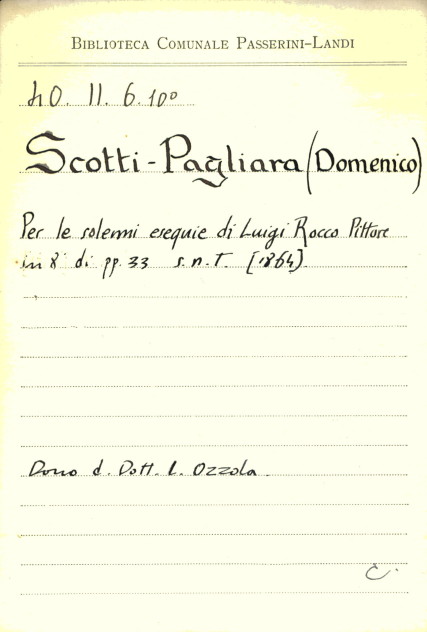 BIBLIOTECA COMUNALE PASSERINI-LANDI
40. II. 6. 10º
Scotti-Pagliara (Domenico)
Per le solenni esequie di Luigi Rocco Pittore
in 8º di pp. 33 s.n.t. [1864]
Dono d. Dott. L. Ozzola.
C.